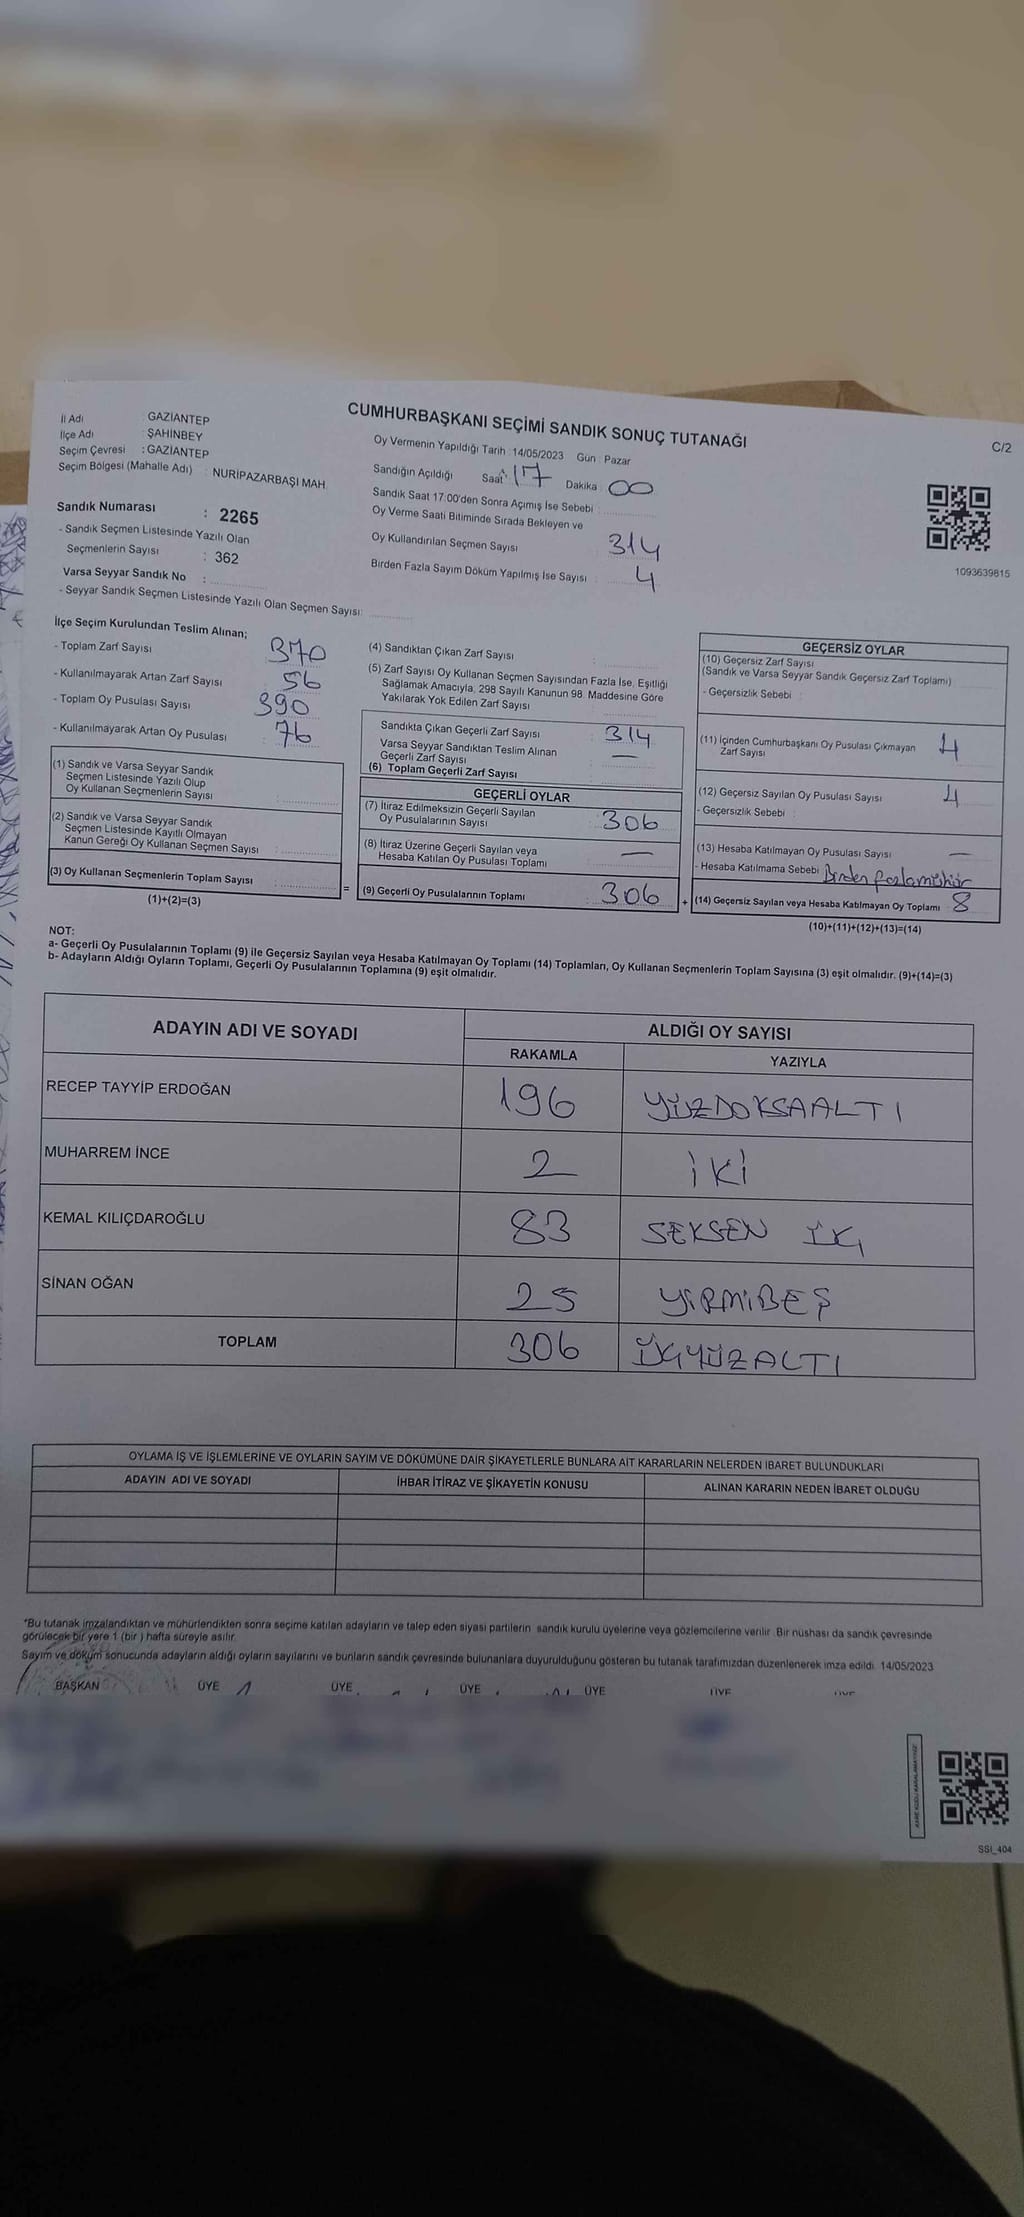 CUMHURBAŞKANI SEÇİMİ SANDIK SONUÇ TUTANAĞI
C/2
İl Adı : GAZİANTEP
İlçe Adı : ŞAHİNBEY
Seçim Çevresi : GAZİANTEP
Seçim Bölgesi (Mahalle Adı) : NURİPAZARBAŞI MAH.
Sandık Numarası : 2265
- Sandık Seçmen Listesinde Yazılı Olan
Seçmenlerin Sayısı : 362
Varsa Seyyar Sandık No :
- Seyyar Sandık Seçmen Listesinde Yazılı Olan Seçmen Sayısı:
Oy Vermenin Yapıldığı Tarih : 14/05/2023 Gün : Pazar
Sandığın Açıldığı Saat 17 Dakika 00
Sandık Saat 17:00'den Sonra Açımış İse Sebebi :
Oy Verme Saati Bitiminde Sırada Bekleyen ve
Oy Kullandırılan Seçmen Sayısı : 314
Birden Fazla Sayım Döküm Yapılmış İse Sayısı : 4
1093639815
İlçe Seçim Kurulundan Teslim Alınan;
- Toplam Zarf Sayısı : 370
- Kullanılmayarak Artan Zarf Sayısı : 56
- Toplam Oy Pusulası Sayısı : 390
- Kullanılmayarak Artan Oy Pusulası : 76
(1) Sandık ve Varsa Seyyar Sandık
Seçmen Listesinde Yazılı Olup
Oy Kullanan Seçmenlerin Sayısı :
(2) Sandık ve Varsa Seyyar Sandık
Seçmen Listesinde Kayıtlı Olmayan
Kanun Gereği Oy Kullanan Seçmen Sayısı :
(3) Oy Kullanan Seçmenlerin Toplam Sayısı :
(1)+(2)=(3)
=
(4) Sandıktan Çıkan Zarf Sayısı :
(5) Zarf Sayısı Oy Kullanan Seçmen Sayısından Fazla İse, Eşitliği
Sağlamak Amacıyla, 298 Sayılı Kanunun 98. Maddesine Göre
Yakılarak Yok Edilen Zarf Sayısı :
Sandıkta Çıkan Geçerli Zarf Sayısı : 314
Varsa Seyyar Sandıktan Teslim Alınan
Geçerli Zarf Sayısı : —
(6) Toplam Geçerli Zarf Sayısı
GEÇERLİ OYLAR
(7) İtiraz Edilmeksizin Geçerli Sayılan
Oy Pusulalarının Sayısı : 306
(8) İtiraz Üzerine Geçerli Sayılan veya
Hesaba Katılan Oy Pusulası Toplamı : —
(9) Geçerli Oy Pusulalarının Toplamı : 306
+
GEÇERSİZ OYLAR
(10) Geçersiz Zarf Sayısı
(Sandık ve Varsa Seyyar Sandık Geçersiz Zarf Toplamı)
- Geçersizlik Sebebi :
(11) İçinden Cumhurbaşkanı Oy Pusulası Çıkmayan
Zarf Sayısı : 4
(12) Geçersiz Sayılan Oy Pusulası Sayısı : 4
- Geçersizlik Sebebi :
(13) Hesaba Katılmayan Oy Pusulası Sayısı : —
- Hesaba Katılmama Sebebi : Birden fazla mühür
(14) Geçersiz Sayılan veya Hesaba Katılmayan Oy Toplamı : 8
(10)+(11)+(12)+(13)=(14)
NOT:
a- Geçerli Oy Pusulalarının Toplamı (9) ile Geçersiz Sayılan veya Hesaba Katılmayan Oy Toplamı (14) Toplamları, Oy Kullanan Seçmenlerin Toplam Sayısına (3) eşit olmalıdır. (9)+(14)=(3)
b- Adayların Aldığı Oyların Toplamı, Geçerli Oy Pusulalarının Toplamına (9) eşit olmalıdır.
ADAYIN ADI VE SOYADI ALDIĞI OY SAYISI
RAKAMLA YAZIYLA
RECEP TAYYİP ERDOĞAN 196 YÜZDOKSAALTI
MUHARREM İNCE 2 İKİ
KEMAL KILIÇDAROĞLU 83 SEKSEN ÜÇ
SİNAN OĞAN 25 YİRMİBEŞ
TOPLAM 306 ÜÇYÜZALTI
OYLAMA İŞ VE İŞLEMLERİNE VE OYLARIN SAYIM VE DÖKÜMÜNE DAİR ŞİKAYETLERLE BUNLARA AİT KARARLARIN NELERDEN İBARET BULUNDUKLARI
ADAYIN ADI VE SOYADI İHBAR İTİRAZ VE ŞİKAYETİN KONUSU ALINAN KARARIN NEDEN İBARET OLDUĞU
*Bu tutanak imzalandıktan ve mühürlendikten sonra seçime katılan adayların ve talep eden siyasi partilerin sandık kurulu üyelerine veya gözlemcilerine verilir. Bir nüshası da sandık çevresinde
görülecek bir yere 1 (bir ) hafta süreyle asılır.
Sayım ve döküm sonucunda adayların aldığı oyların sayılarını ve bunların sandık çevresinde bulunanlara duyurulduğunu gösteren bu tutanak tarafımızdan düzenlenerek imza edildi. 14/05/2023
BAŞKAN ÜYE ÜYE ÜYE ÜYE ÜYE ÜYE
SSİ_404